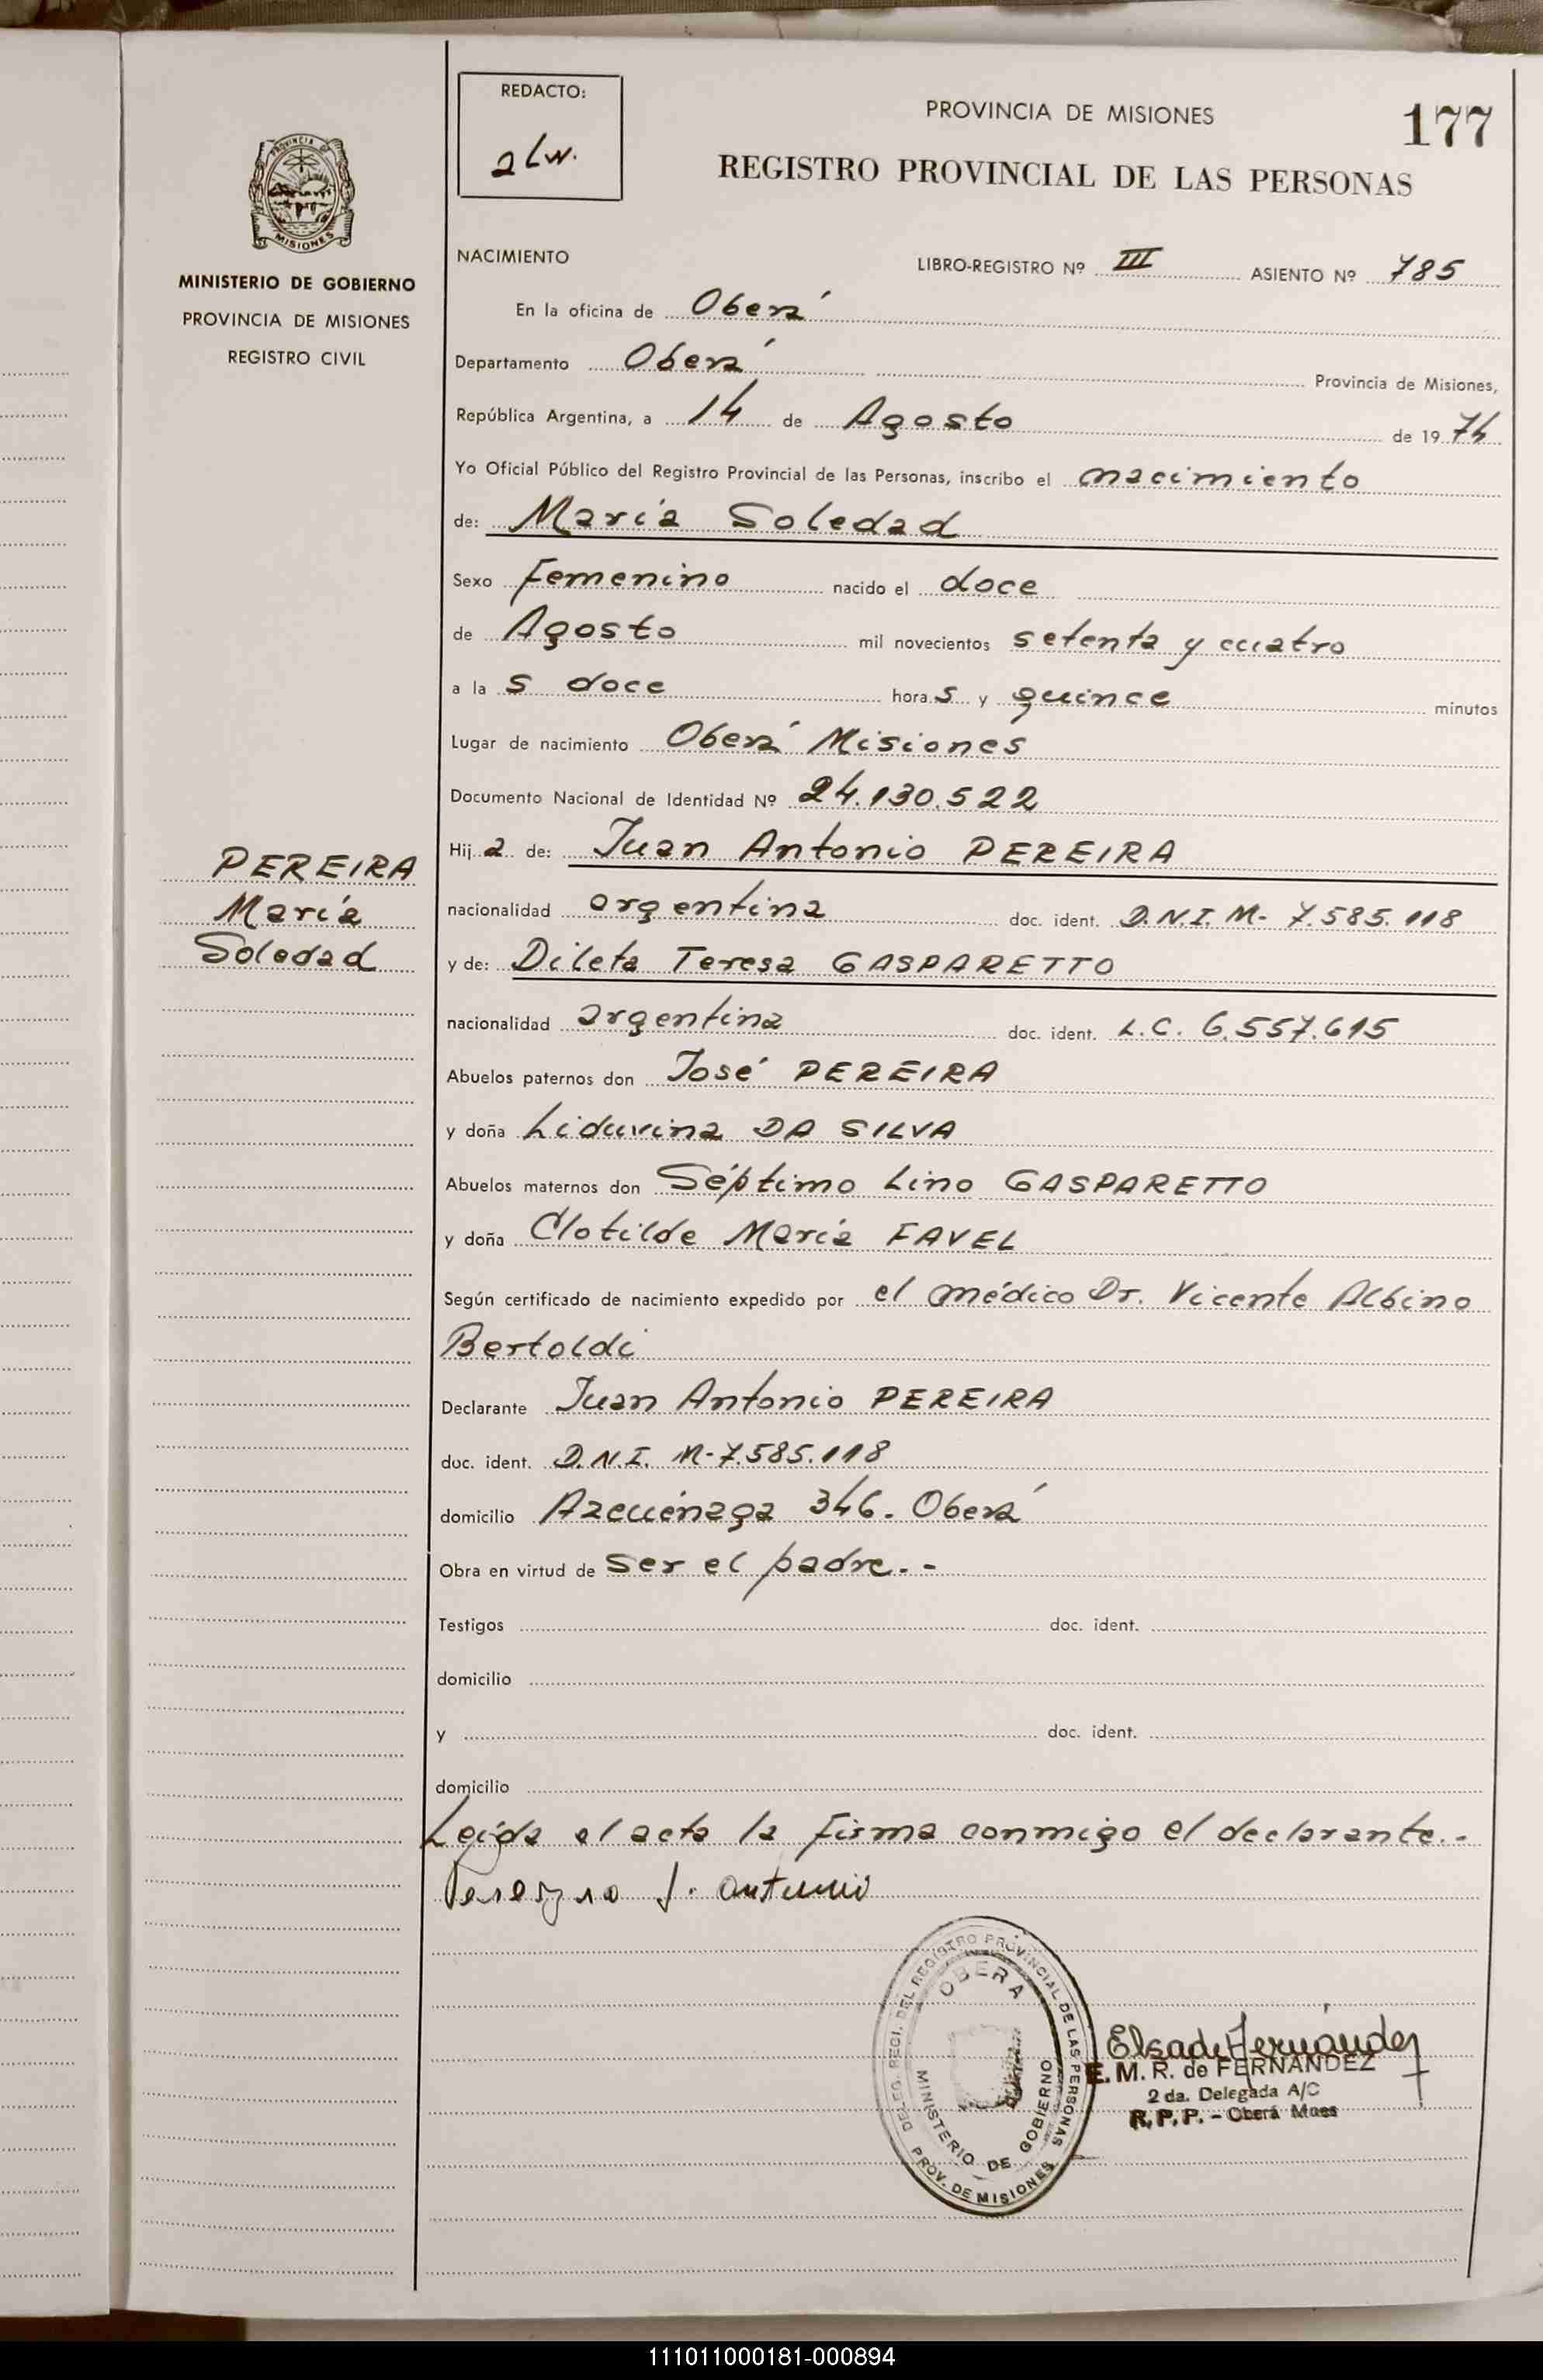 REDACTO:
alw.
PROVINCIA DE MISIONES
177
REGISTRO PROVINCIAL DE LAS PERSONAS
PROVINCIA DE
MISIONES
MINISTERIO DE GOBIERNO
PROVINCIA DE MISIONES
REGISTRO CIVIL
NACIMIENTO
LIBRO-REGISTRO Nº III ASIENTO Nº 785
En la oficina de Oberá
Departamento Oberá Provincia de Misiones,
República Argentina, a 14 de Agosto de 1974
Yo Oficial Público del Registro Provincial de las Personas, inscribo el nacimiento
de: María Soledad
Sexo Femenino nacido el doce
de Agosto mil novecientos setenta y cuatro
a la s doce hora s y quince minutos
Lugar de nacimiento Oberá Misiones
Documento Nacional de Identidad Nº 24.130.522
Hij a de: Juan Antonio PEREIRA
PEREIRA
María
Soledad
nacionalidad argentina doc. ident. D.N.I. M- 7.585.118
y de: Dileta Teresa GASPARETTO
nacionalidad argentina doc. ident. L.C. 6.557.615
Abuelos paternos don José PEREIRA
y doña Liduvina DA SILVA
Abuelos maternos don Séptimo Lino GASPARETTO
y doña Clotilde María FAVEL
Según certificado de nacimiento expedido por el médico Dr. Vicente Albino
Bertoldi
Declarante Juan Antonio PEREIRA
doc. ident. D.N.I. M-7.585.118
domicilio Azcuénaga 346. Oberá
Obra en virtud de ser el padre.-
Testigos doc. ident.
domicilio
y doc. ident.
domicilio
Leída el acta la firma conmigo el declarante.-
J. Antonio
DELEG. REGI. DEL REGISTRO PROVINCIAL DE LAS PERSONAS
OBERA
MINISTERIO DE GOBIERNO
PROV. DE MISIONES
Elsa de Fernández
E. M. R. de FERNANDEZ
2 da. Delegada A/C
R. P. P. - Oberá Mnes
111011000181-000894